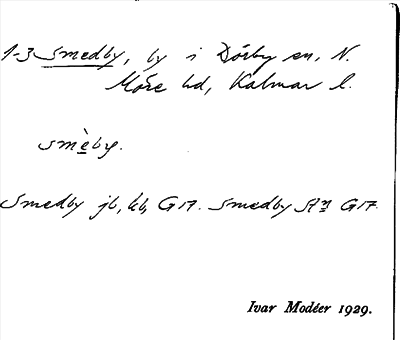 1-3 Smedby, by i Dörby sn, N.
Möre hd, Kalmar l.
smèby.
Smedby jb, kb, G 17. Smedby stn G 17.
Ivar Modéer 1929.